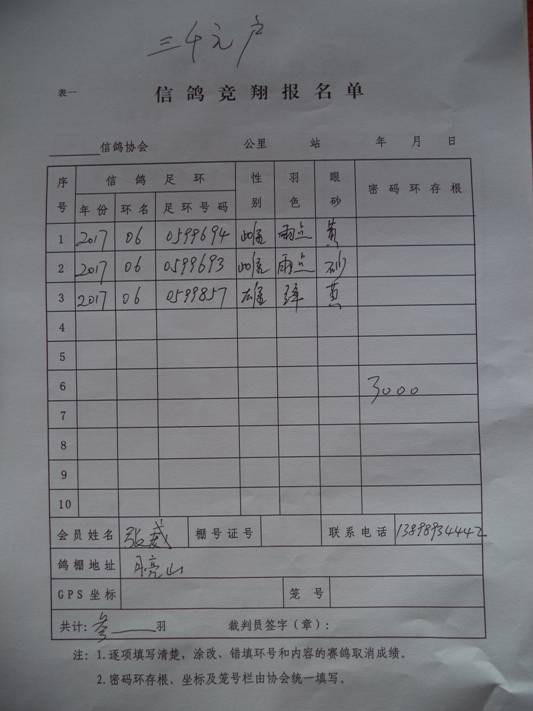 三千元户
表一
信鸽竞翔报名单
信鸽协会 公里 站 年 月 日
序号 信鸽足环 性别 羽色 眼砂 密码环存根
年份 环名 足环号码
1 2017 06 0599694 雌 雨点 黄
2 2017 06 0599693 雌 雨点 砂
3 2017 06 0599857 雄 绛 黄
4
5
6 3000
7
8
9
10
会员姓名 张威 棚号证号 联系电话 13898934442
鸽棚地址 月亮山
GPS坐标 笼号
共计：叁 羽 裁判员签字（章）：
注：1.逐项填写清楚，涂改、错填环号和内容的赛鸽取消成绩。
2.密码环存根、坐标及笼号栏由协会统一填写。